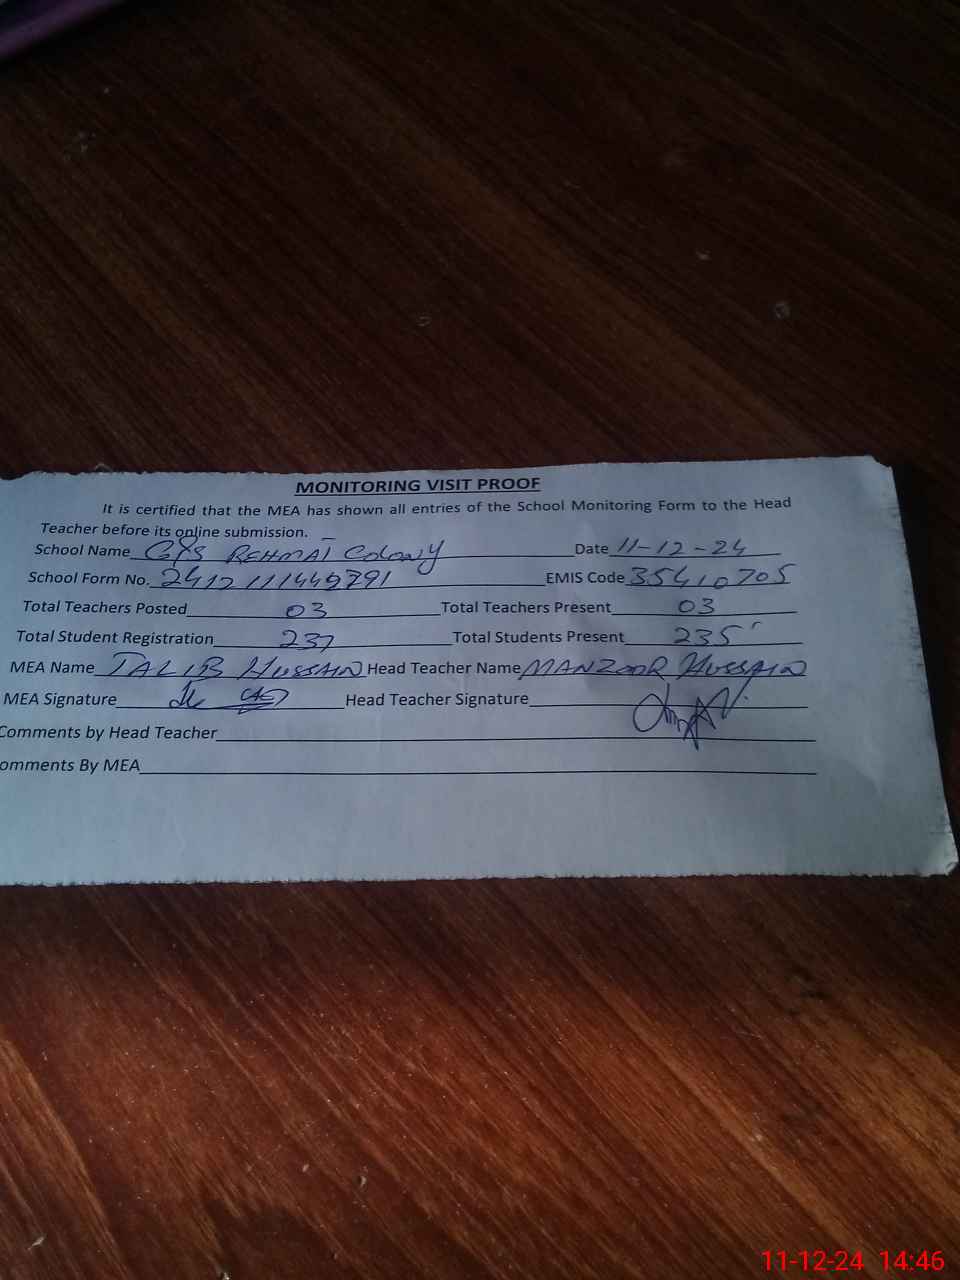 MONITORING VISIT PROOF
It is certified that the MEA has shown all entries of the School Monitoring Form to the Head
Teacher before its online submission.
School Name REHMAT Colony Date 11-12-24
School Form No. EMIS Code 35410705
Total Teachers Posted 03 Total Teachers Present 03
Total Student Registration 237 Total Students Present 235
MEA Name TALIB HUSSAIN Head Teacher Name MANZOOR HUSSAIN
MEA Signature Head Teacher Signature
Comments by Head Teacher
omments By MEA
11-12-24 14:46